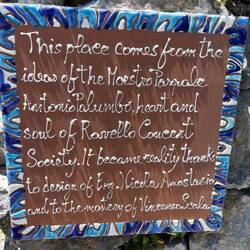 This place comes from the
ideas of the Maestro Pasquale
Antonio Palumbo, heart and
soul of Ravello Concert
Society. It became reality thanks
to design of Eng. Nicola Amostasio
and to the masery of Vincenzo Scala